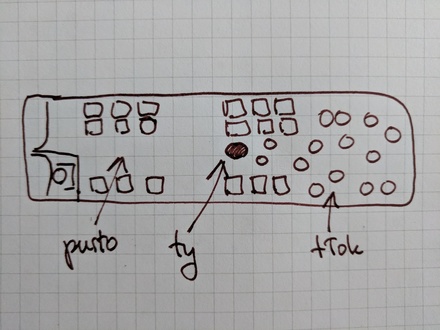 pusto
ty
tłok